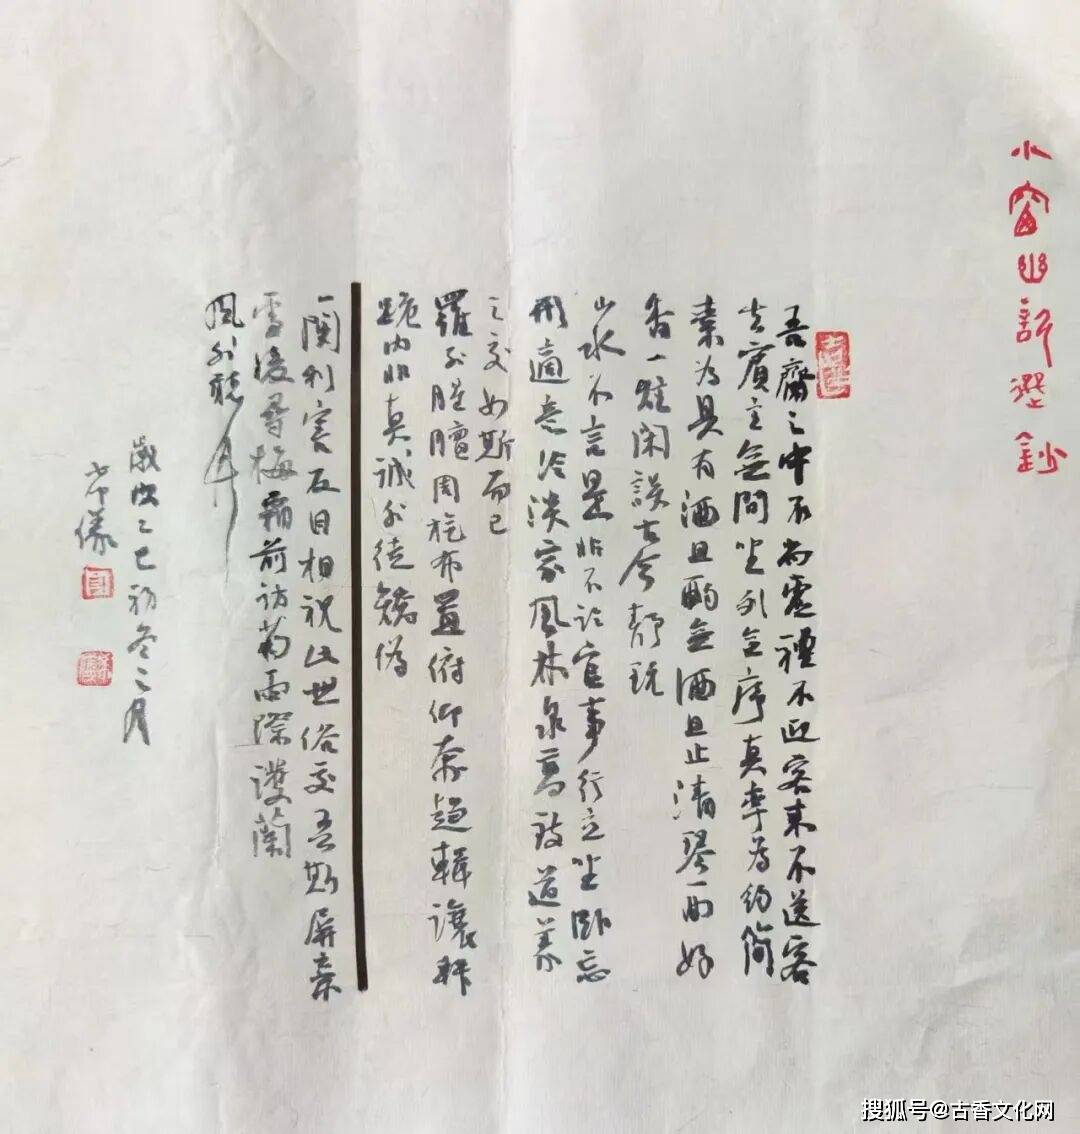 小窗幽記鈔
吾齋之中不尚虛禮不迎客來不送客
去賓主無間坐列無序真率為約簡
素為具有酒且酌無酒且止清琴一曲好
香一炷閑談古今靜玩
山水不言是非不論官事行立坐臥忘
形適意冷淡家風林泉高致道義
之交如斯而已
羅列腥膻周旋布置俯仰奔趨揖讓拜
跪內非真誠外徒矯偽
一關利害反目相視此世俗交吾斯屏棄
雪後尋梅霜前訪菊雨際護蘭
風外聽竹
歲次乙巳初冬之月
搜狐号@古香文化网